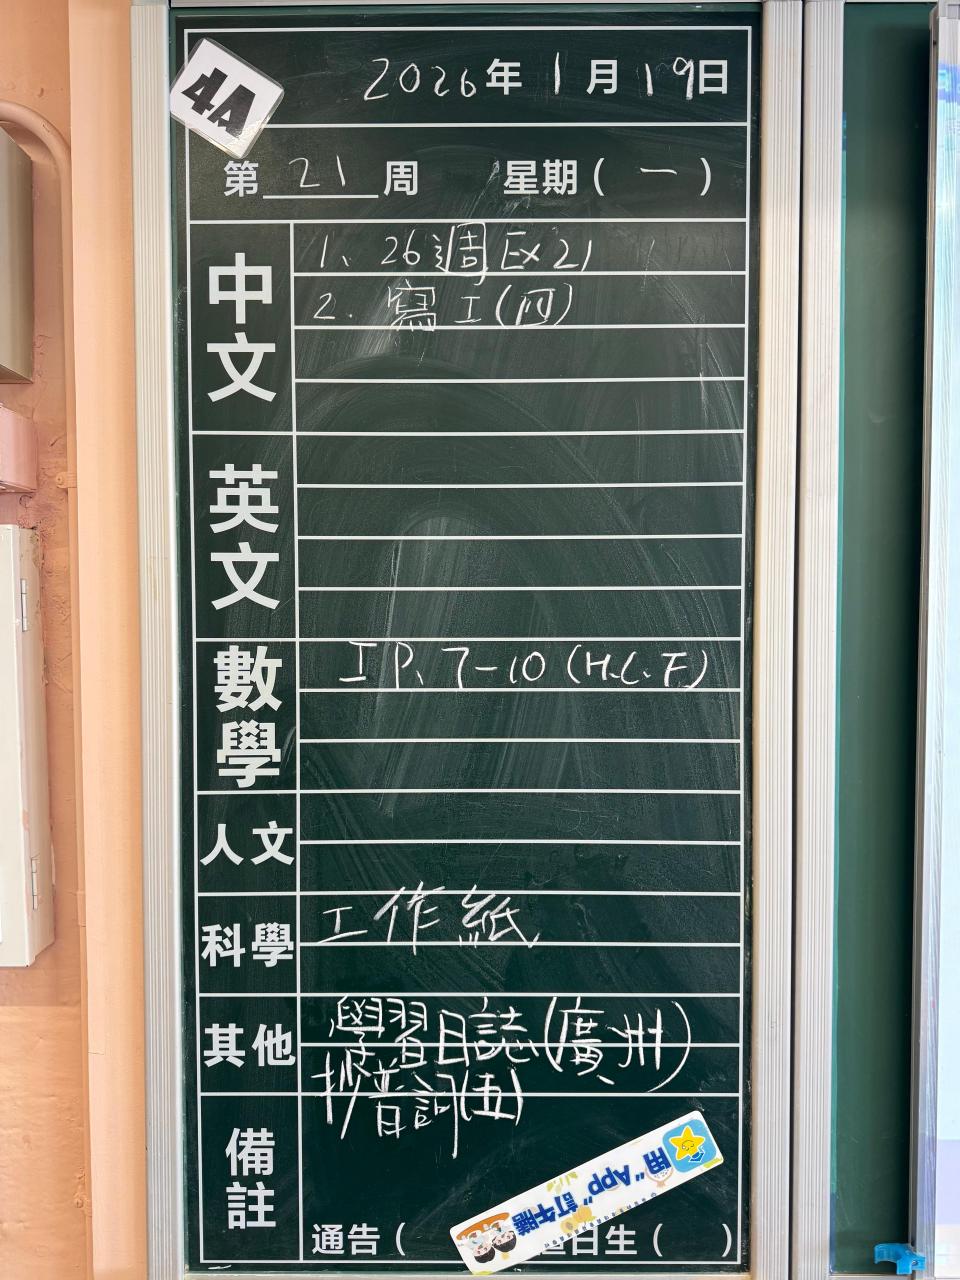 4A
2026年1月19日
第21周 星期(一)
中文
1、26週Ex21
2. 寫工(四)
英文
數學
工P.7-10(H.C.F.)
人文
科學
工作紙
其他
學習日誌(廣州)
抄普詞(五)
備註
用"App"訂午膳
通告( 日生( )